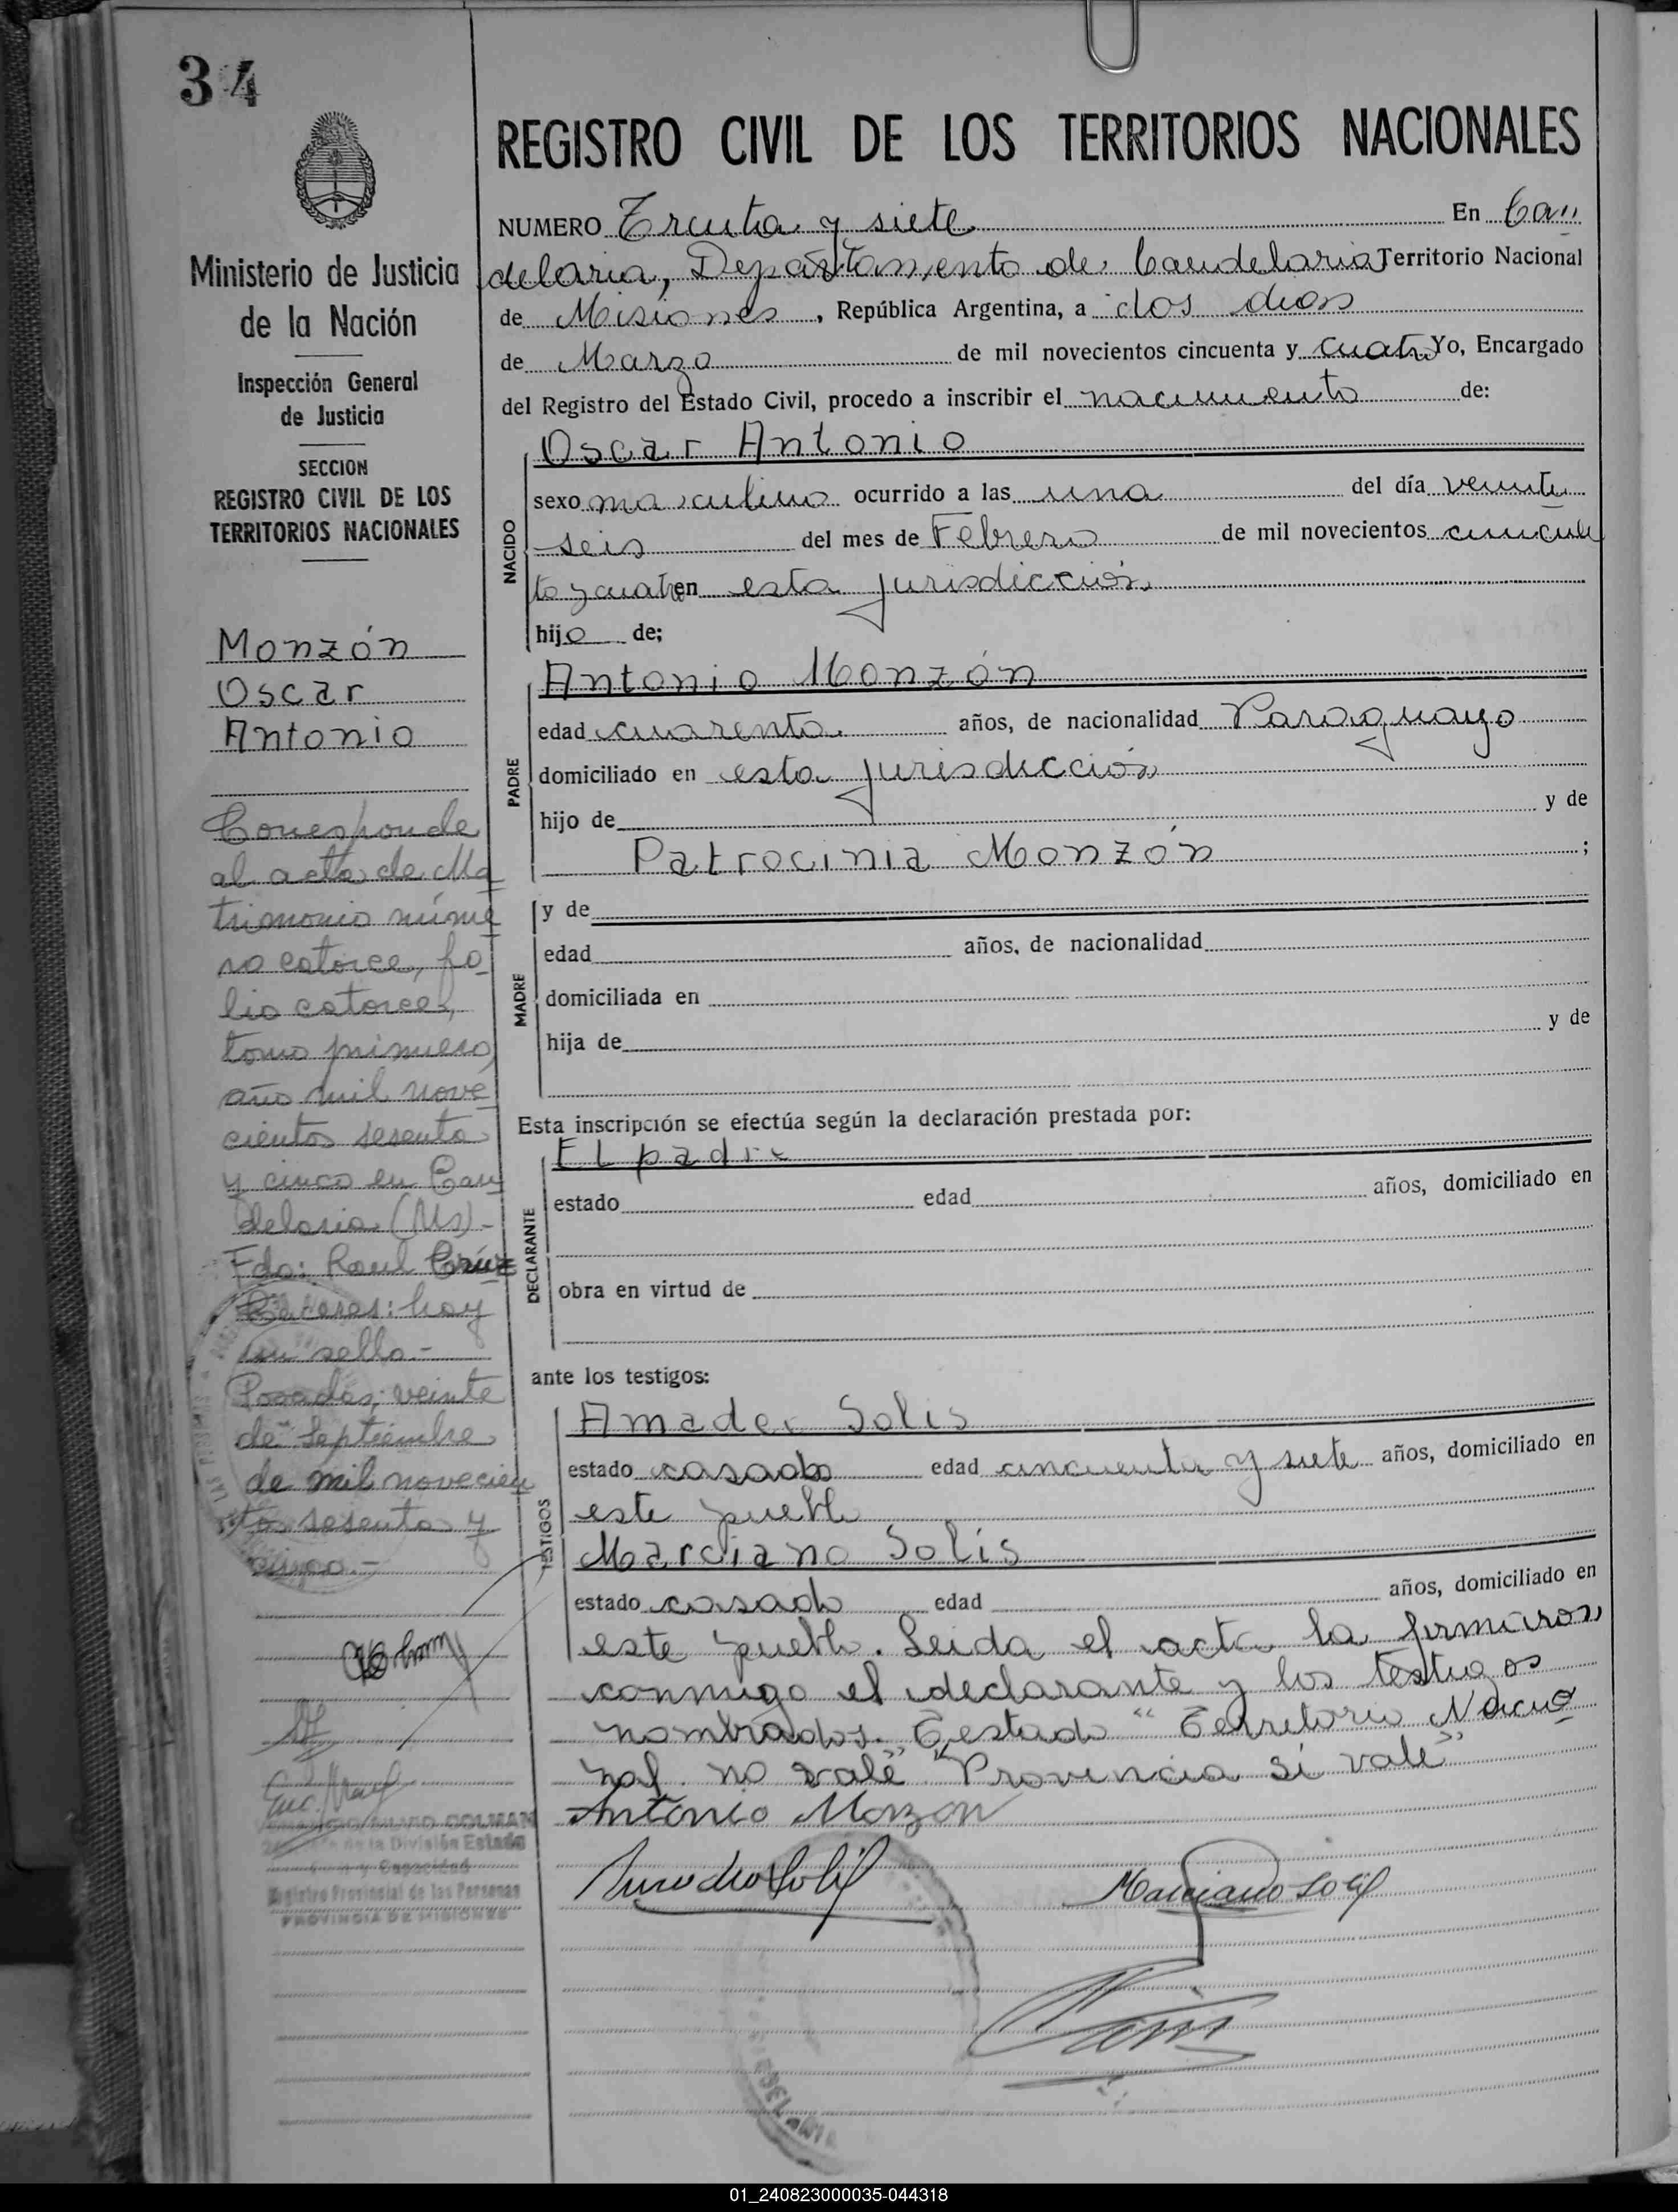 34
Ministerio de Justicia
de la Nación
Inspección General
de Justicia
SECCION
REGISTRO CIVIL DE LOS
TERRITORIOS NACIONALES
Monzón
Oscar
Antonio
Corresponde
al acta de Ma
trimonio núme
ro catorce, fo
lio catorce,
tomo primero,
año mil nove
cientos sesenta
y cinco en Can
delaria (Ms)-
Fdo: Raul Crúz
Caceres: hay
un sello.-
Posadas, veinte
de Septiembre
de mil novecien
tos sesenta y
cinco.-
COLMAN
de la División Estado
Civil y Capacidad
Registro Provincial de las Personas
PROVINCIA DE MISIONES
REGISTRO CIVIL DE LOS TERRITORIOS NACIONALES
NUMERO Treinta y siete En Can
delaria, Departamento de Candelaria Territorio Nacional
de Misiones, República Argentina, a dos dias
de Marzo de mil novecientos cincuenta y cuatro Yo, Encargado
del Registro del Estado Civil, procedo a inscribir el nacimiento de:
Oscar Antonio
NACIDO
sexo masculino ocurrido a las una del día veinte
seis del mes de Febrero de mil novecientos cincuen
ta y cuatro en esta jurisdicción
hijo de;
Antonio Monzón
PADRE
edad cuarenta años, de nacionalidad Paraguayo
domiciliado en esta jurisdicción
hijo de y de
Patrocinia Monzón ;
MADRE
y de
edad años, de nacionalidad
domiciliada en
hija de y de
Esta inscripción se efectúa según la declaración prestada por:
El padre
DECLARANTE
estado edad años, domiciliado en
obra en virtud de
ante los testigos:
Amadeo Solis
TESTIGOS
estado casado edad cincuenta y siete años, domiciliado en
este pueblo
Marciano Solis
estado casado edad años, domiciliado en
este pueblo. Leida el acta la firmaron
conmigo el declarante y los testigos
nombrados. Testado "Territorio Nacio
nal no vale" "Provincia si vale"
Antonio Monzon
Amadeo Solis
Marciano Solis
01_240823000035-044318